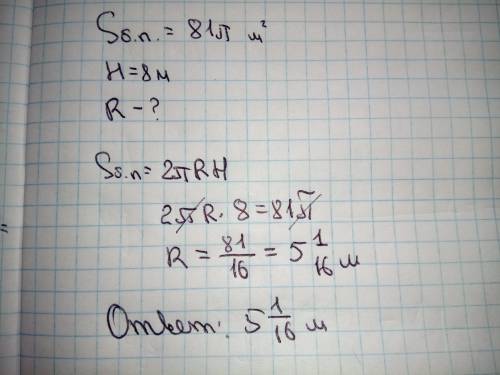 Sб.п. = 81π м²
H = 8м
R - ?
Sб.п = 2πRH
2πR · 8 = 81π
R = 81/16 = 5 1/16 м
Ответ: 5 1/16 м